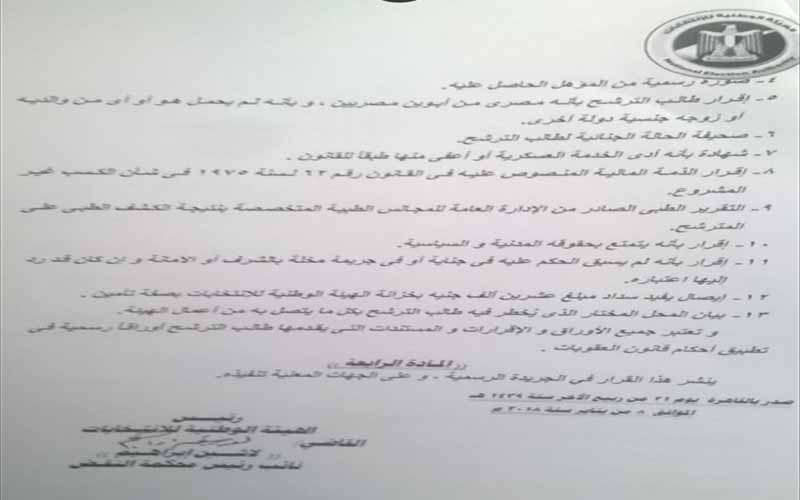 الهيئة الوطنية للانتخابات
National Election Authority
٤- صورة رسمية من المؤهل الحاصل عليه.
٥- إقرار طالب الترشح بأنه مصرى من أبوين مصريين ، و بأنه لم يحمل هو أو أى من والديه
أو زوجه جنسية دولة أخرى.
٦- صحيفة الحالة الجنائية لطالب الترشح.
٧- شهادة بأنه أدى الخدمة العسكرية أو أعفى منها طبقاً للقانون .
٨- إقرار الذمة المالية المنصوص عليه فى القانون رقم ٦٢ لسنة ١٩٧٥ فى شأن الكسب غير
المشروع.
٩- التقرير الطبى الصادر من الإدارة العامة للمجالس الطبية المتخصصة بنتيجة الكشف الطبى على
المترشح.
١٠- إقرار بأنه يتمتع بحقوقه المدنية و السياسية.
١١- إقرار بأنه لم يسبق الحكم عليه فى جناية أو فى جريمة مخلة بالشرف أو الأمانة و إن كان قد رد
إليها اعتباره.
١٢- إيصال يفيد سداد مبلغ عشرين ألف جنيه بخزانة الهيئة الوطنية للانتخابات بصفة تأمين .
١٣- بيان المحل المختار الذى يُخطر فيه طالب الترشح بكل ما يتصل به من أعمال الهيئة.
و تعتبر جميع الأوراق و الإقرارات و المستندات التى يقدمها طالب الترشح أوراقاً رسمية فى
تطبيق أحكام قانون العقوبات .
(( المادة الرابعة ))
ينشر هذا القرار فى الجريدة الرسمية ، و على الجهات المعنية تنفيذه.
صدر بالقاهرة يوم ٢١ من ربيع الآخر سنة ١٤٣٩ هـ
الموافق ٨ من يناير سنة ٢٠١٨ م
رئيس
الهيئة الوطنية للانتخابات
القاضي/
(( لاشين إبراهيم ))
نائب رئيس محكمة النقض